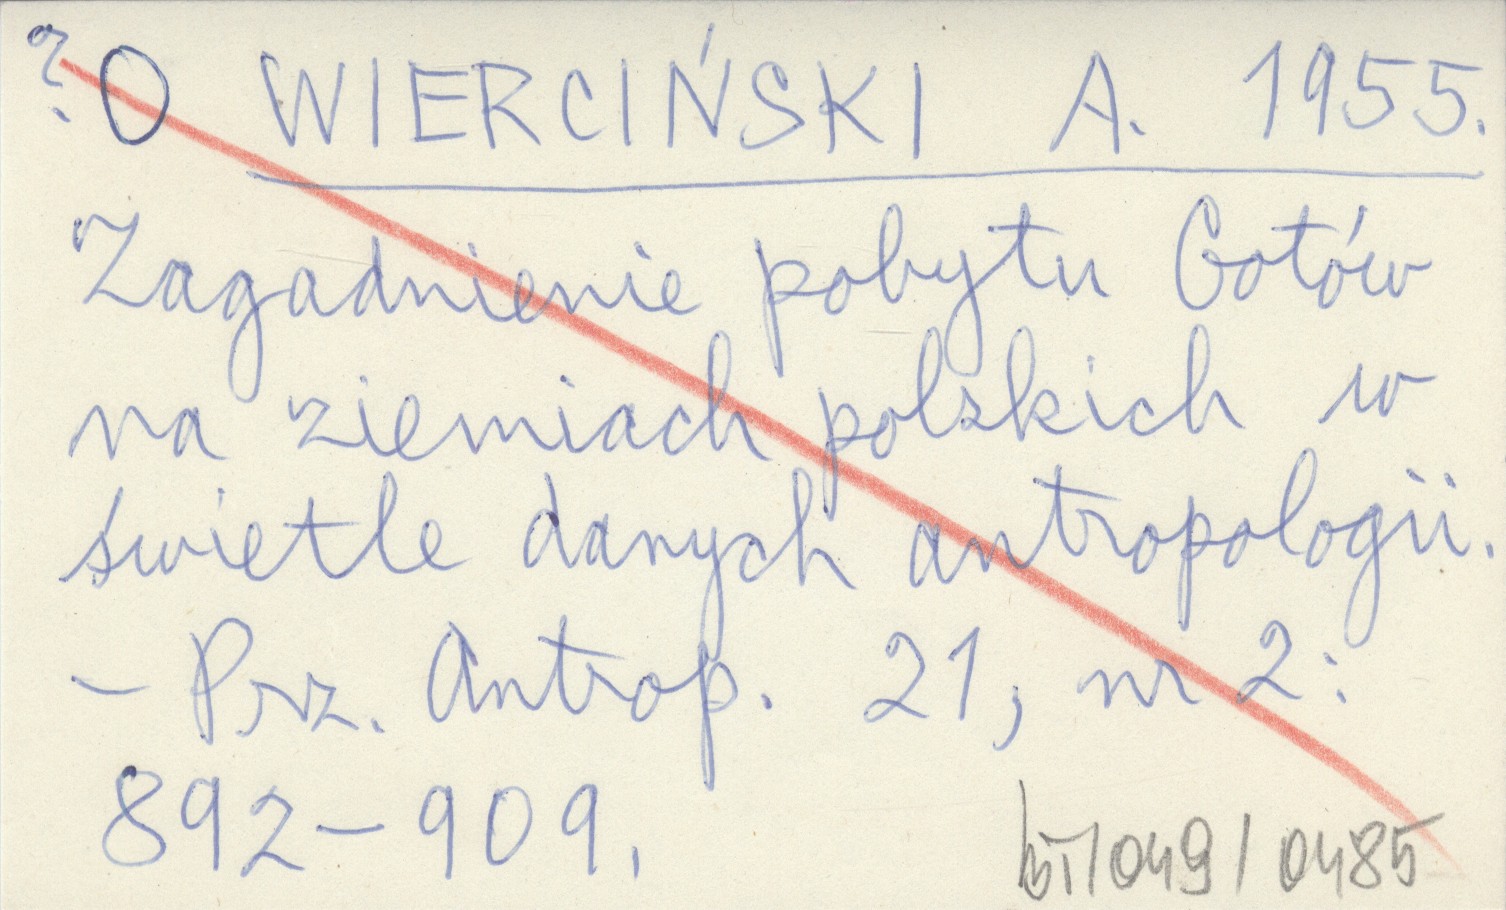 ? O WIERCIŃSKI A. 1955.
Zagadnienie pobytu Gotów
na ziemiach polskich w
świetle danych antropologii.
– Prz. Antrop. 21, nr 2:
892–909.
/049/0485